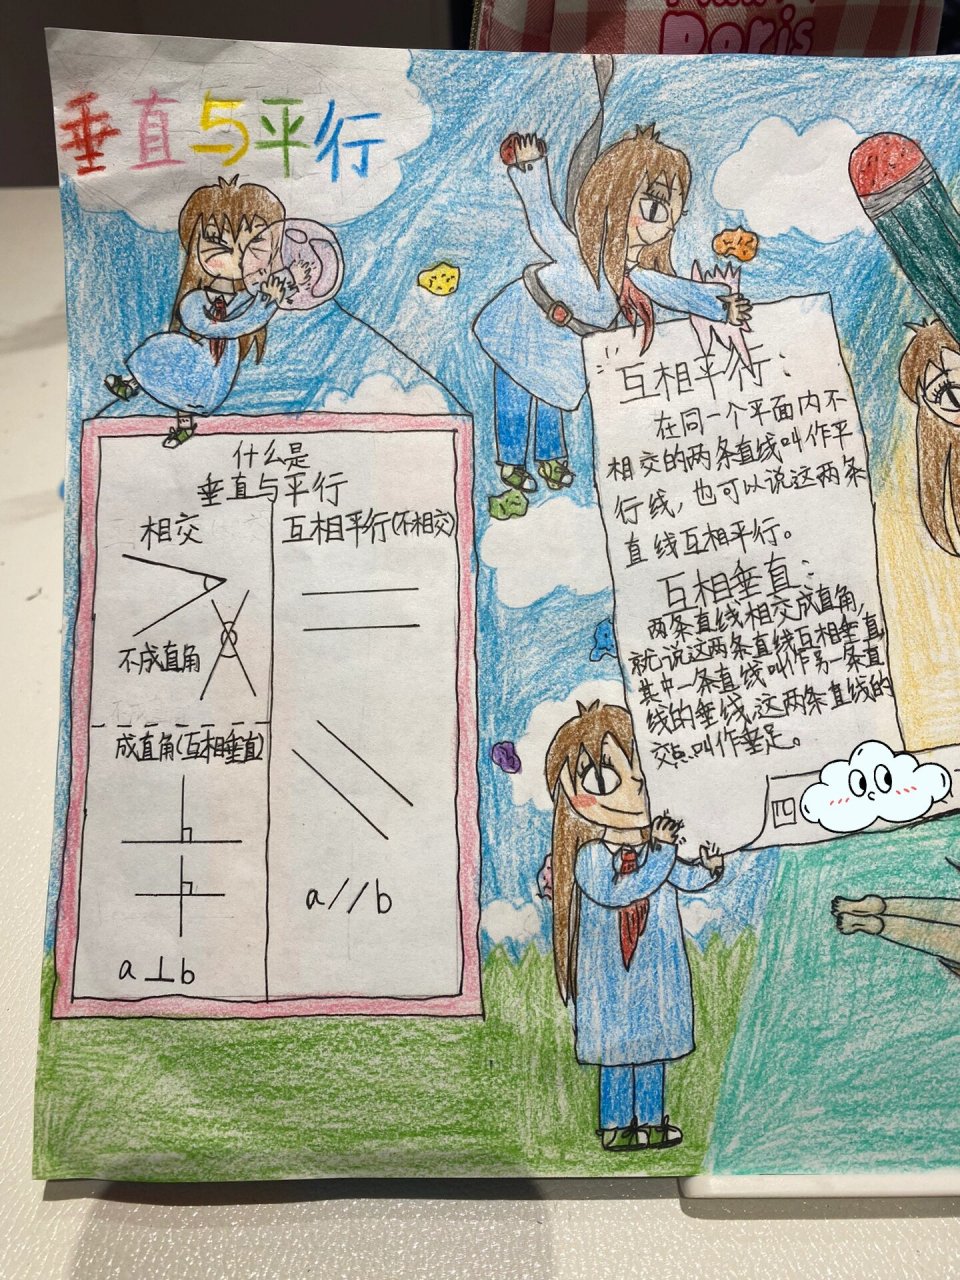 Doris
垂直与平行
什么是
垂直与平行
相交
互相平行(不相交)
不成直角
成直角(互相垂直)
a⊥b
a//b
互相平行:
在同一个平面内不
相交的两条直线叫作平
行线,也可以说这两条
直线互相平行。
互相垂直:
两条直线相交成直角,
就说这两条直线互相垂直
其中一条直线叫作另一条直
线的垂线,这两条直线的
交点叫作垂足。
四